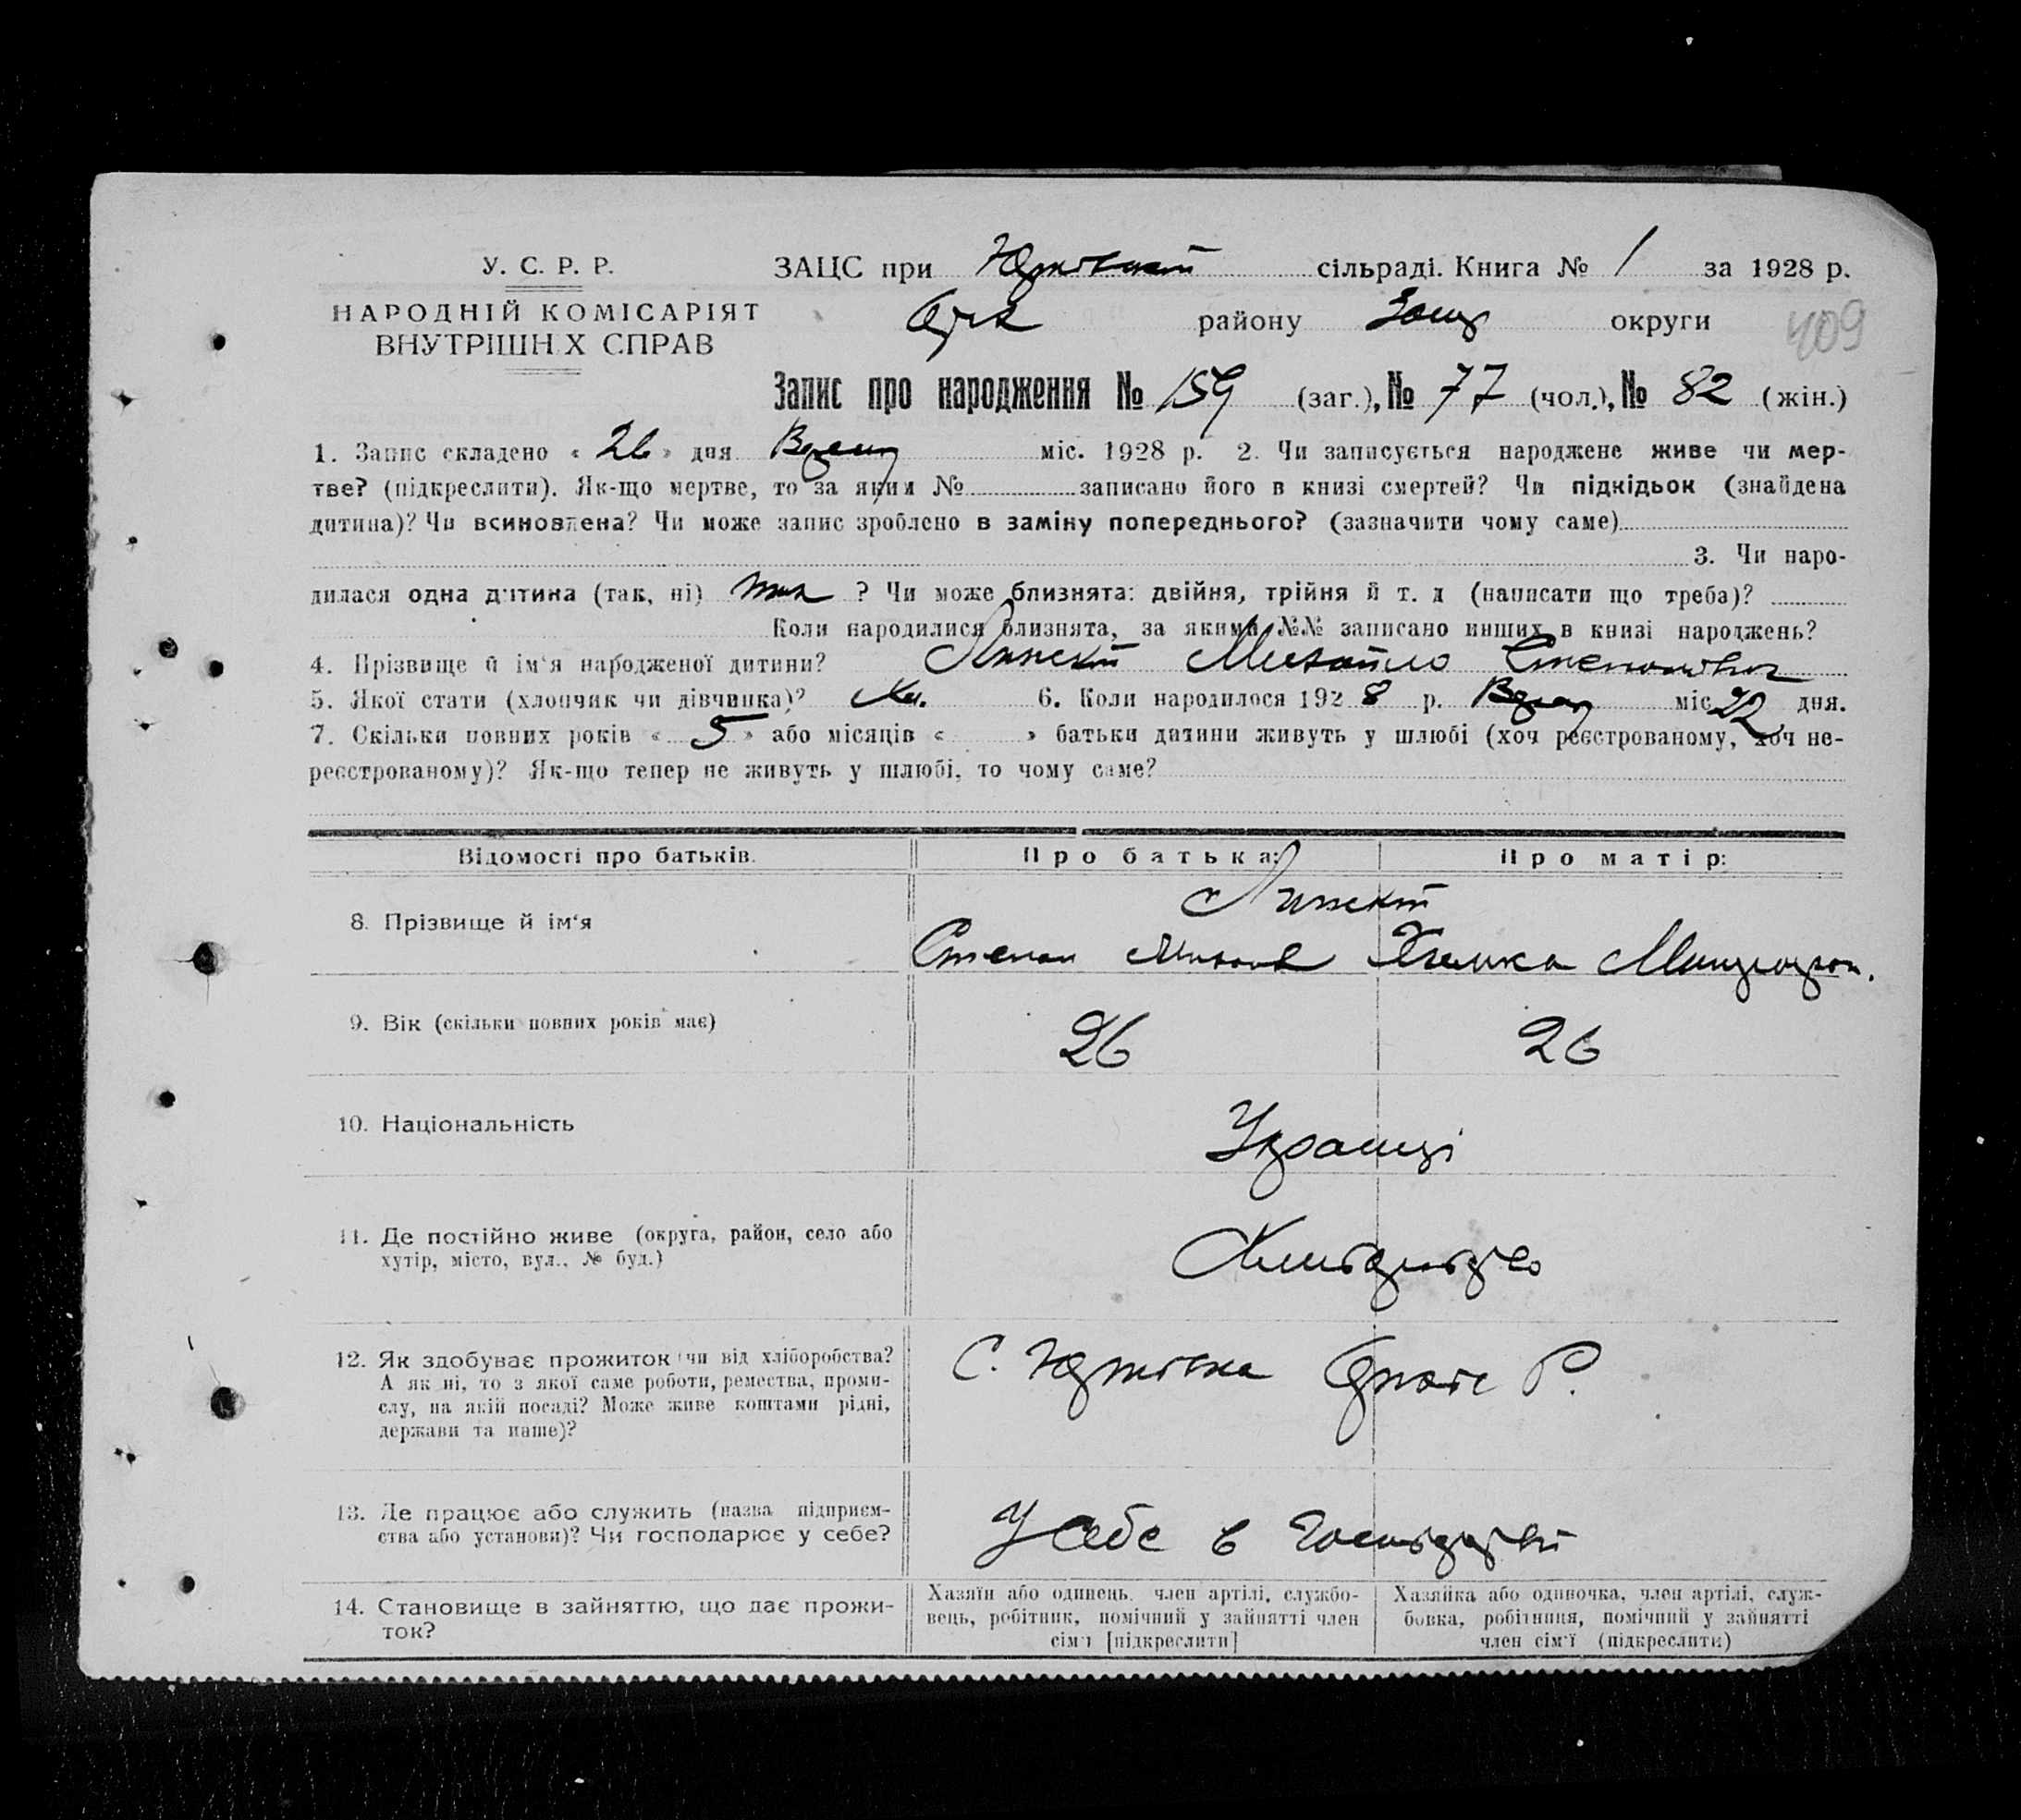 У. С. Р. Р.
НАРОДНІЙ КОМІСАРІЯТ
ВНУТРІШНІХ СПРАВ
ЗАЦС при сільраді. Книга № 1 за 1928 р.
району округи
409
Запис про народження № 159 (заг.), № 77 (чол.), № 82 (жін.)
1. Запис складено « 26 » дня міс. 1928 р. 2. Чи записується народжене живе чи мер-
тве? (підкреслити). Як-що мертве, то за яким № записано його в книзі смертей? Чи підкідьок (знайдена
дитина)? Чи всиновлена? Чи може запис зроблено в заміну попереднього? (зазначити чому саме)
3. Чи наро-
дилася одна дитина (так, ні) так ? Чи може близнята: двійня, трійня й т. д (написати що треба)?
Коли народилися близнята, за якими №№ записано инших в книзі народжень?
4. Прізвище й ім'я народженої дитини? Михайло Степанович
5. Якої стати (хлопчик чи дівчинка)? Хл. 6. Коли народилося 1928 р. міс 22 дня.
7. Скільки повних років « 5 » або місяців « » батьки дитини живуть у шлюбі (хоч реєстрованому, хоч не-
реєстрованому)? Як-що тепер не живуть у шлюбі, то чому саме?
Відомості про батьків. Про батька: Про матір:
8. Прізвище й ім'я
Степан
9. Вік (скільки повних років має) 26 26
10. Національність Українці
11. Де постійно живе (округа, район, село або
хутір, місто, вул., № буд.)
12. Як здобуває прожиток (чи від хліборобства?
А як ні, то з якої саме роботи, ремества, проми-
слу, на якій посаді? Може живе коштами рідні,
держави та инше)?
С. Р.
13. Де працює або служить (назва підприєм-
ства або установи)? Чи господарює у себе?
У себе в господарстві
14. Становище в зайняттю, що дає прожи-
ток?
Хазяїн або одинець, член артілі, службо-
вець, робітник, помічний у зайнятті член
сім'ї [підкреслити]
Хазяйка або одиночка, член артілі, служ-
бовка, робітниця, помічний у зайнятті
член сім'ї (підкреслити)